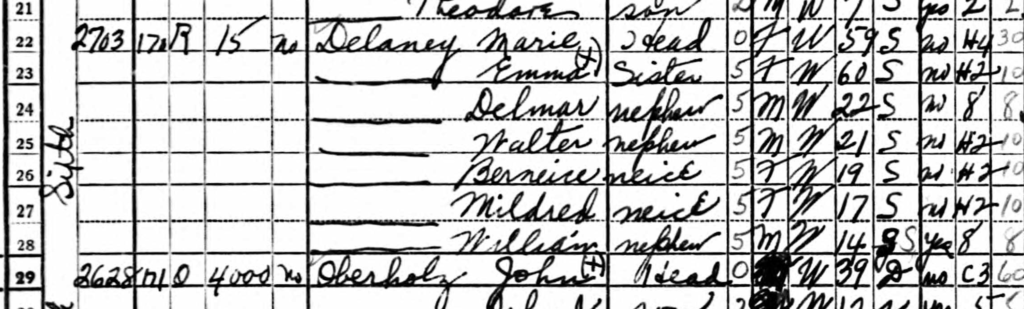 21 Theodore son 2 M W 7 S yes 2
22 2703 170 R 15 no Delaney Marie, Head 0 F W 59 S no H4 30
23 —— Emma (+) Sister 5 F W 60 S no H2 10
24 —— Delmar nephew 5 M W 22 S no 8 8
25 —— Walter nephew 5 M W 21 S no H2 10
26 —— Berneice neice 5 F W 19 S no H2 10
27 —— Mildred neice 5 F W 17 S no H2 10
28 —— William nephew 5 M W 14 S yes 8 8
29 2628 171 O 4000 no Oberholz John (+) Head 0 W 39 D no C3 60
Sixth